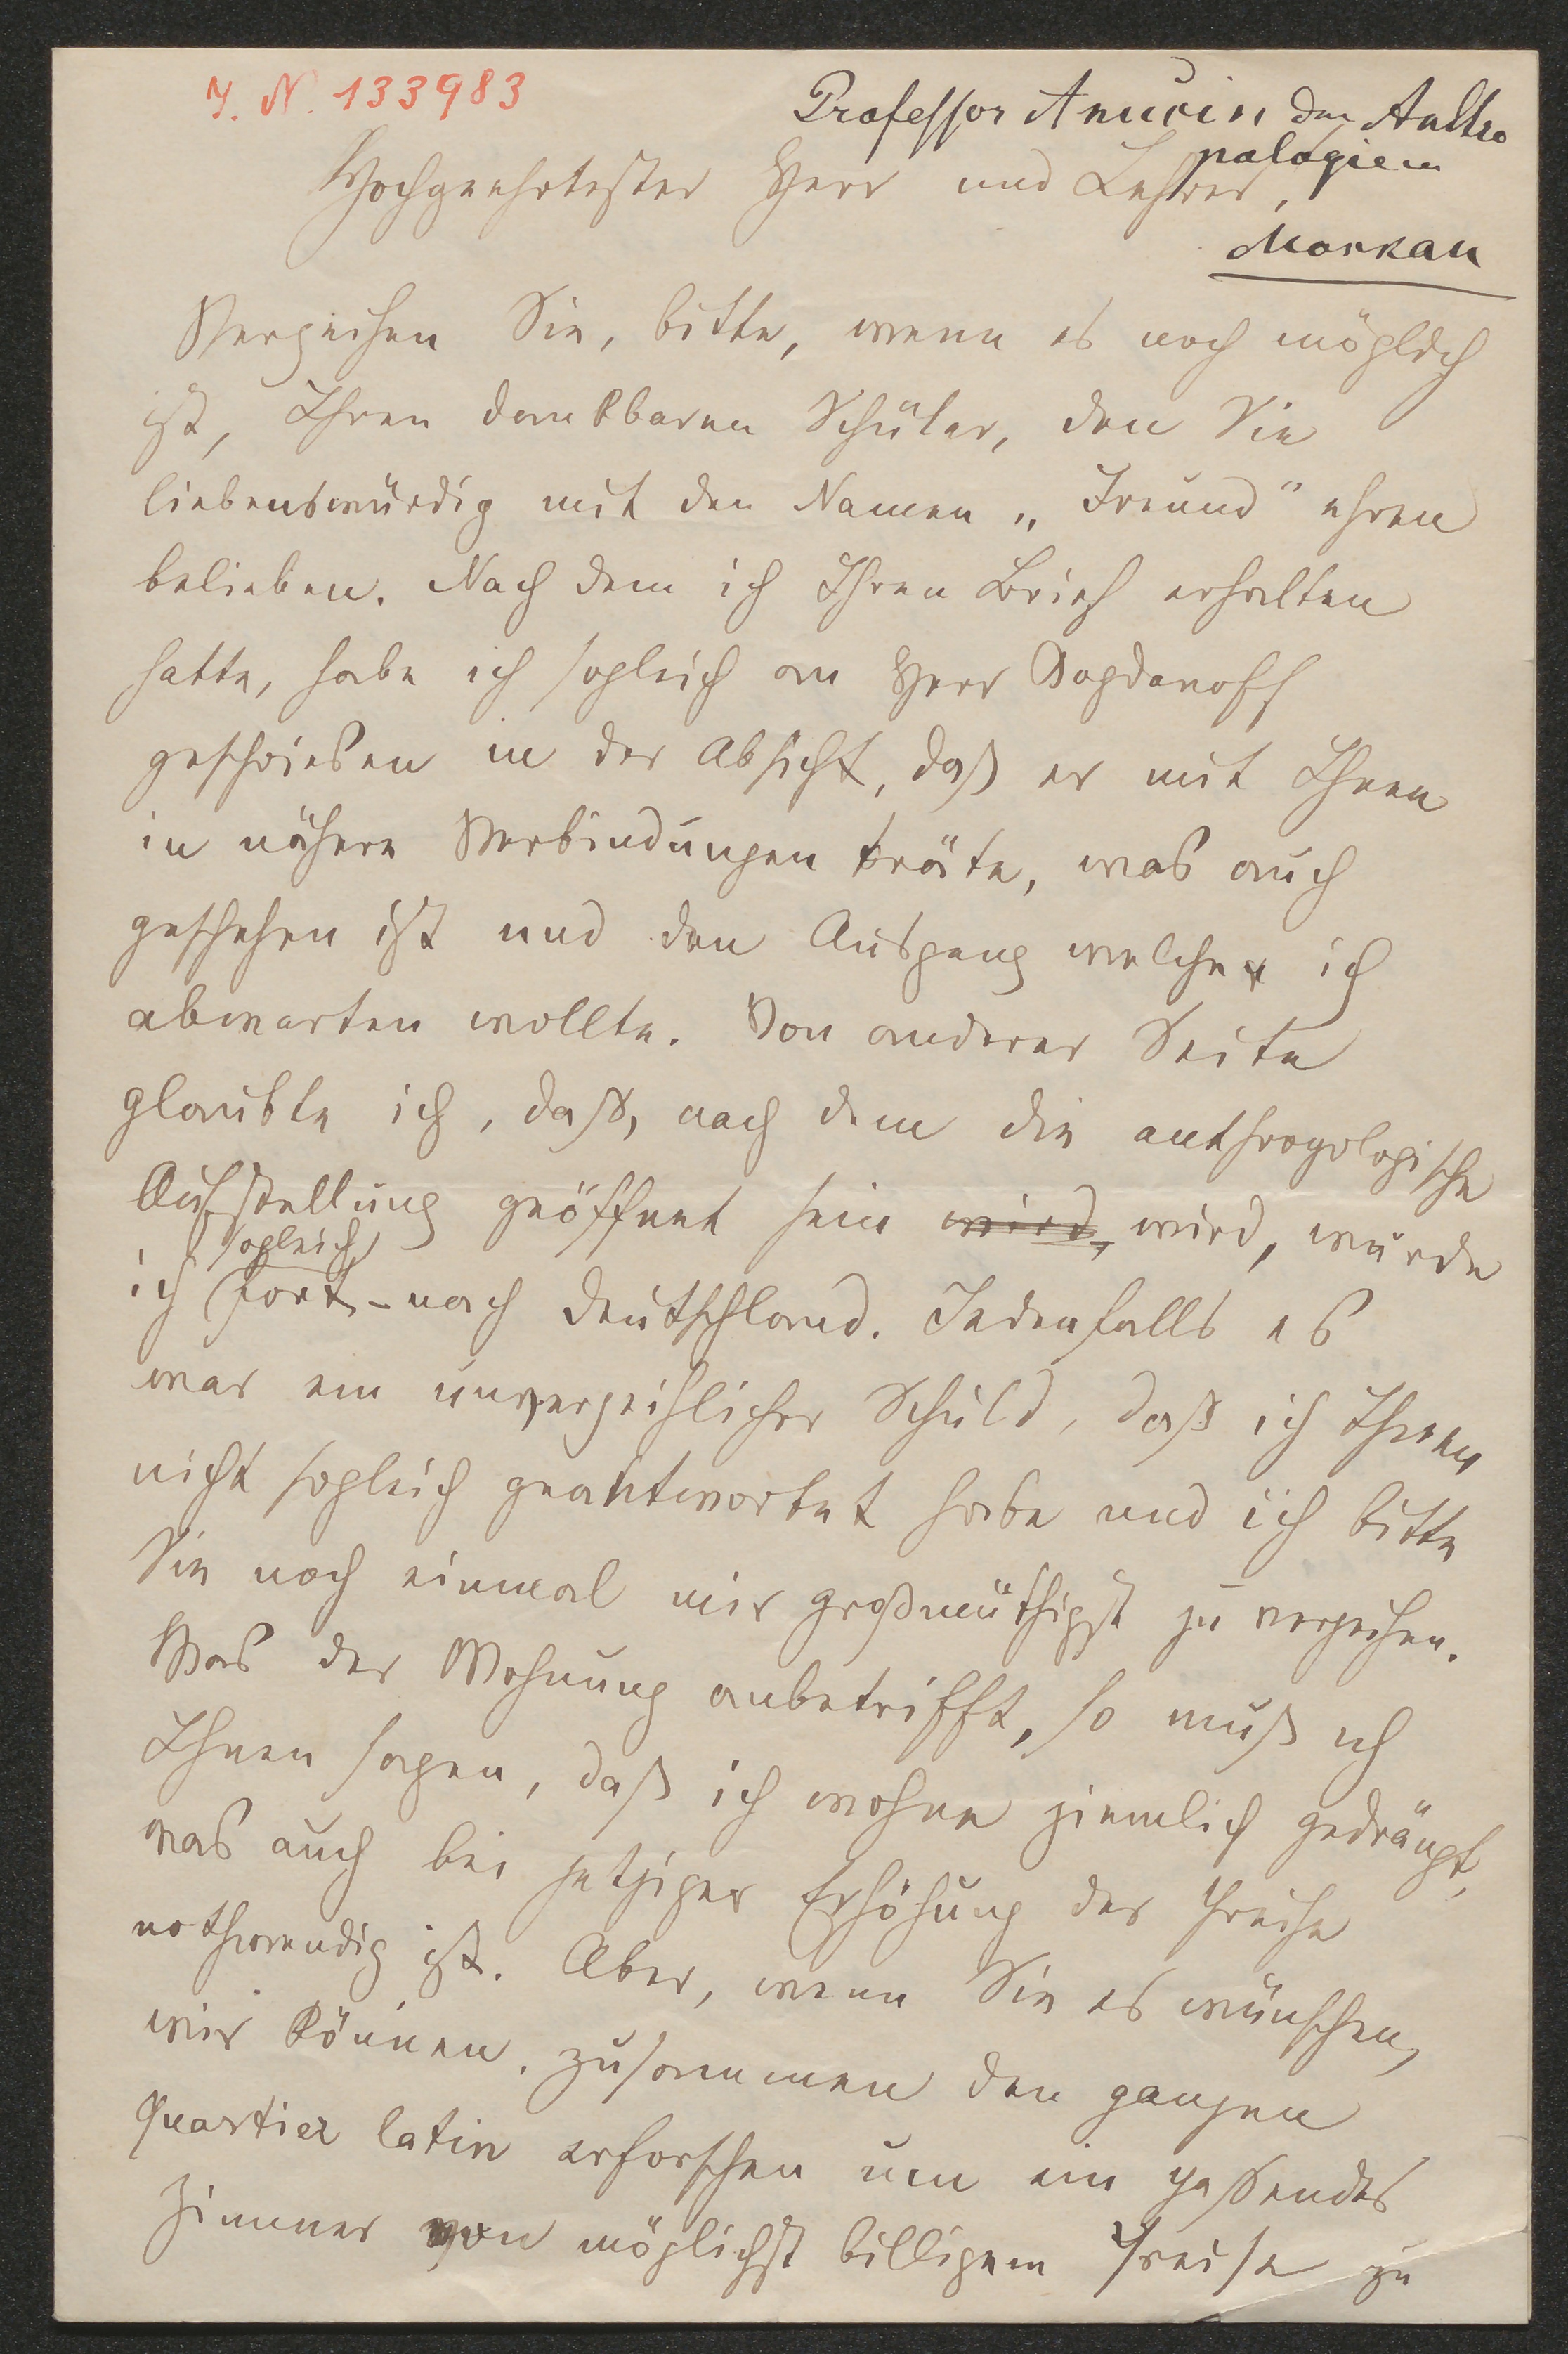 J. N. 133983
Professor Anučin der Anthro
pologie in
Moskau
Hochgeehrtester Herr und Lehrer,
Verzeihen Sie, bitte, wenn es noch möglich
ist, Ihren dankbaren Schüler, den Sie
liebenswürdig mit den Namen „Freund" ehren
belieben. Nach dem ich Ihren Brief erhalten
hatte, habe ich sogleich an Herr Bogdanoff
geschrieben in der Absicht, daß er mit Ihnen
in nähere Verbindungen träte, was auch
geschehen ist und den Ausgang welcher ich
abwarten wollte. Von anderer Seite
glaubte ich, daß, nach dem die anthropologische
Aufstellung geöffnet sein wird, wird, wurde
sogleich
ich fort - nach Deutschland. Jedenfalls es
war ein unverzeihlicher Schuld, daß ich Ihnen
nicht sogleich geantwortet habe und ich bitte
Sie noch einmal mir großmüthigst zu verzeihen.
Was der Wohnung anbetrifft, so muß ich
Ihnen sagen, daß ich wohne ziemlich gedrängt,
was auch bei jetziger Erhöhung der Preise
nothwendig ist. Aber, wenn Sie es wünschen,
wir können zusammen den ganzen
Quartier latin erforschen um ein passendes
Zimmer von möglichst billigem Preise zu